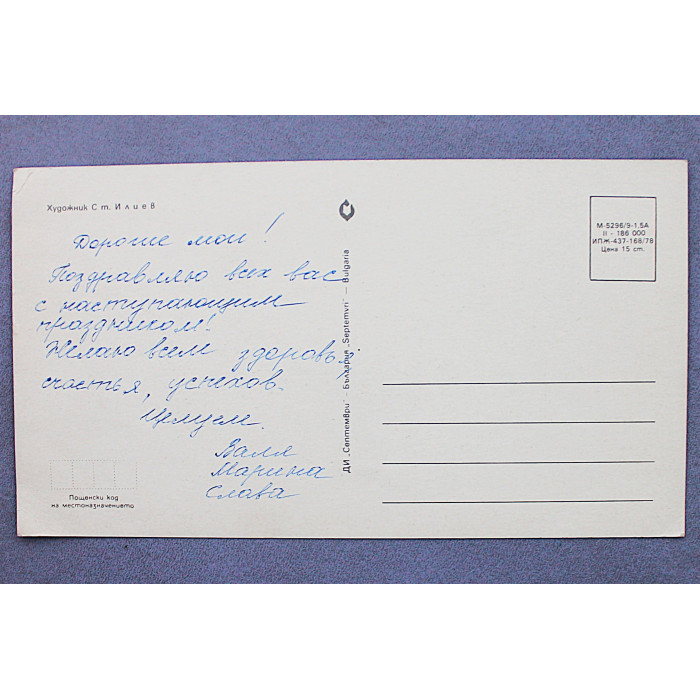 Художник Ст. Илиев
Дорогие мои!
Поздравляю всех вас
с наступающим
праздником!
Желаю всем здоровья,
счастья, успехов.
Целуем.
Валя
Марина
Слава
Пощенски код
на местоназначението
ДИ „Септември" – България „Septemvri" – Bulgaria
М-5296/9-1,5А
II - 186 000
ИПЖ-437-168/78
Цена 15 ст.